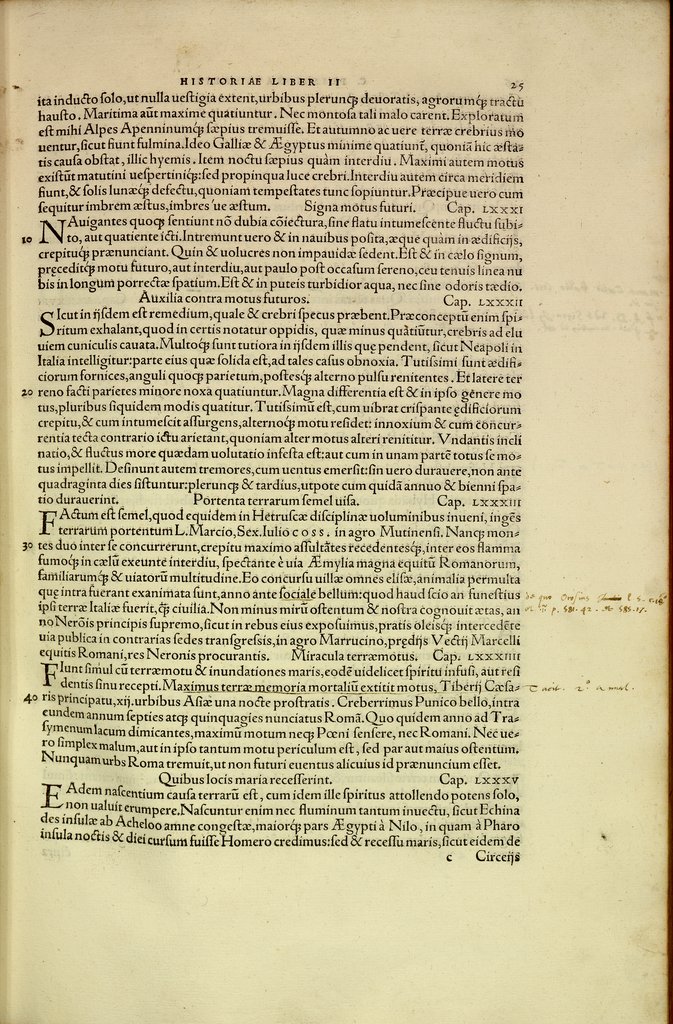 HISTORIAE LIBER II 25
ita inducto solo, ut nulla uestigia extent, urbibus plerunq́; deuoratis, agrorumq́; tractu
hausto. Maritima aũt maxime quatiuntur. Nec montosa tali malo carent. Exploratum
est mihi Alpes Apenninumq́; sæpius tremuisse. Et autumno ac uere terræ crebrius mo
uentur, sicut fiunt fulmina. Ideo Galliæ & Ægyptus minime quatiunt᷑, quoniã hic æsta⸗
tis causa obstat, illic hyemis. Item noctu sæpius quàm interdiu. Maximi autem motus
existũt matutini uespertiniq́;: sed propinqua luce crebri. Interdiu autem circa meridiem
fiunt, & solis lunæq́; defectu, quoniam tempestates tunc sopiuntur. Præcipue uero cum
sequitur imbrem æstus, imbres ue æstum. Signa motus futuri. Cap. LXXXI
NAuigantes quoq; sentiunt nõ dubia cõiectura, sine flatu intumescente fluctu subi⸗
10 to, aut quatiente icti. Intremunt uero & in nauibus posita, æque quàm in ædificijs,
crepituq́; prænunciant. Quin & uolucres non impauidæ sedent. Est & in cælo signum,
præceditq́; motu futuro, aut interdiu, aut paulo post occasum sereno, ceu tenuis linea nu
bis in longum porrectæ spatium. Est & in puteis turbidior aqua, nec sine odoris tædio.
Auxilia contra motus futuros. Cap. LXXXII
SIcut in ijsdem est remedium, quale & crebri specus præbent. Præconceptũ enim spi⸗
ritum exhalant, quod in certis notatur oppidis, quæ minus quatiũtur, crebris ad elu
uiem cuniculis cauata. Multoq́; sunt tutiora in ijsdem illis quę pendent, sicut Neapoli in
Italia intelligitur: parte eius quæ solida est, ad tales casus obnoxia. Tutissimi sunt ædifi⸗
ciorum fornices, anguli quoq; parietum, postesq́; alterno pulsu renitentes. Et latere ter
20 reno facti parietes minore noxa quatiuntur. Magna differentia est & in ipso genere mo
tus, pluribus siquidem modis quatitur. Tutissimũ est, cum uibrat crispante ędificiorum
crepitu, & cum intumescit assurgens, alternoq́; motu residet: innoxium & cum concur⸗
rentia tecta contrario ictu arietant, quoniam alter motus alteri renititur. Vndantis incli
natio, & fluctus more quædam uolutatio infesta est: aut cum in unam partẽ totus se mo⸗
tus impellit. Desinunt autem tremores, cum uentus emersit: sin uero durauere, non ante
quadraginta dies sistuntur: plerunq; & tardius, utpote cum quidã annuo & bienni spa⸗
tio durauerint. Portenta terrarum semel uisa. Cap. LXXXIII
FActum est semel, quod equidem in Hetruscæ disciplinæ uoluminibus inueni, ingẽs
terrarum portentum L. Marcio, Sex. Iulio coss. in agro Mutinensi. Nanq; mon⸗
30 tes duo inter se concurrerunt, crepitu maximo assultãtes recedentesq́;, inter eos flamma
fumoq́; in cælũ exeunte interdiu, spectante è uia Æmylia magna equitũ Romanorum,
familiarumq́; & uiatorũ multitudine. Eo concursu uillæ omnes elisæ, animalia permulta
quę intra fuerant exanimata sunt, anno ante sociale bellum: quod haud scio an funestius
ipsi terræ Italiæ fuerit, q̃ ciuilia. Non minus mirũ ostentum & nostra cognouit ætas, an
no Nerõis principis supremo, sicut in rebus eius exposuimus, pratis oleisq́; intercedẽte
uia publica in contrarias sedes transgressis, in agro Marrucino, prędijs Vectij Marcelli
equitis Romani, res Neronis procurantis. Miracula terræmotus. Cap. LXXXIIII
FIunt simul cũ terræmotu & inundationes maris, eodẽ uidelicet spiritu infusi, aut resi
dentis sinu recepti. Maximus terræ memoria mortaliũ extitit motus, Tiberij Cæsa⸗
40 ris principatu, xij. urbibus Asiæ una nocte prostratis. Creberrimus Punico bello, intra
eundem annum septies atq; quinquagies nunciatus Romã. Quo quidem anno ad Tra⸗
symenum lacum dimicantes, maximũ motum neq; Pœni sensere, nec Romani. Nec ue⸗
ro simplex malum, aut in ipso tantum motu periculum est, sed par aut maius ostentum.
Nunquam urbs Roma tremuit, ut non futuri euentus alicuius id prænuncium esset.
Quibus locis maria recesserint. Cap. LXXXV
EAdem nascentium causa terrarũ est, cum idem ille spiritus attollendo potens solo,
non ualuit erumpere. Nascuntur enim nec fluminum tantum inuectu, sicut Echina
des insulæ ab Acheloo amne congestæ, maiorq́; pars Ægypti à Nilo, in quam à Pharo
insula noctis & diei cursum fuisse Homero credimus: sed & recessu maris, sicut eidem de
c Circeijs
de quo Orosius l. 5. c. 18
Tacit. 2º Annal.